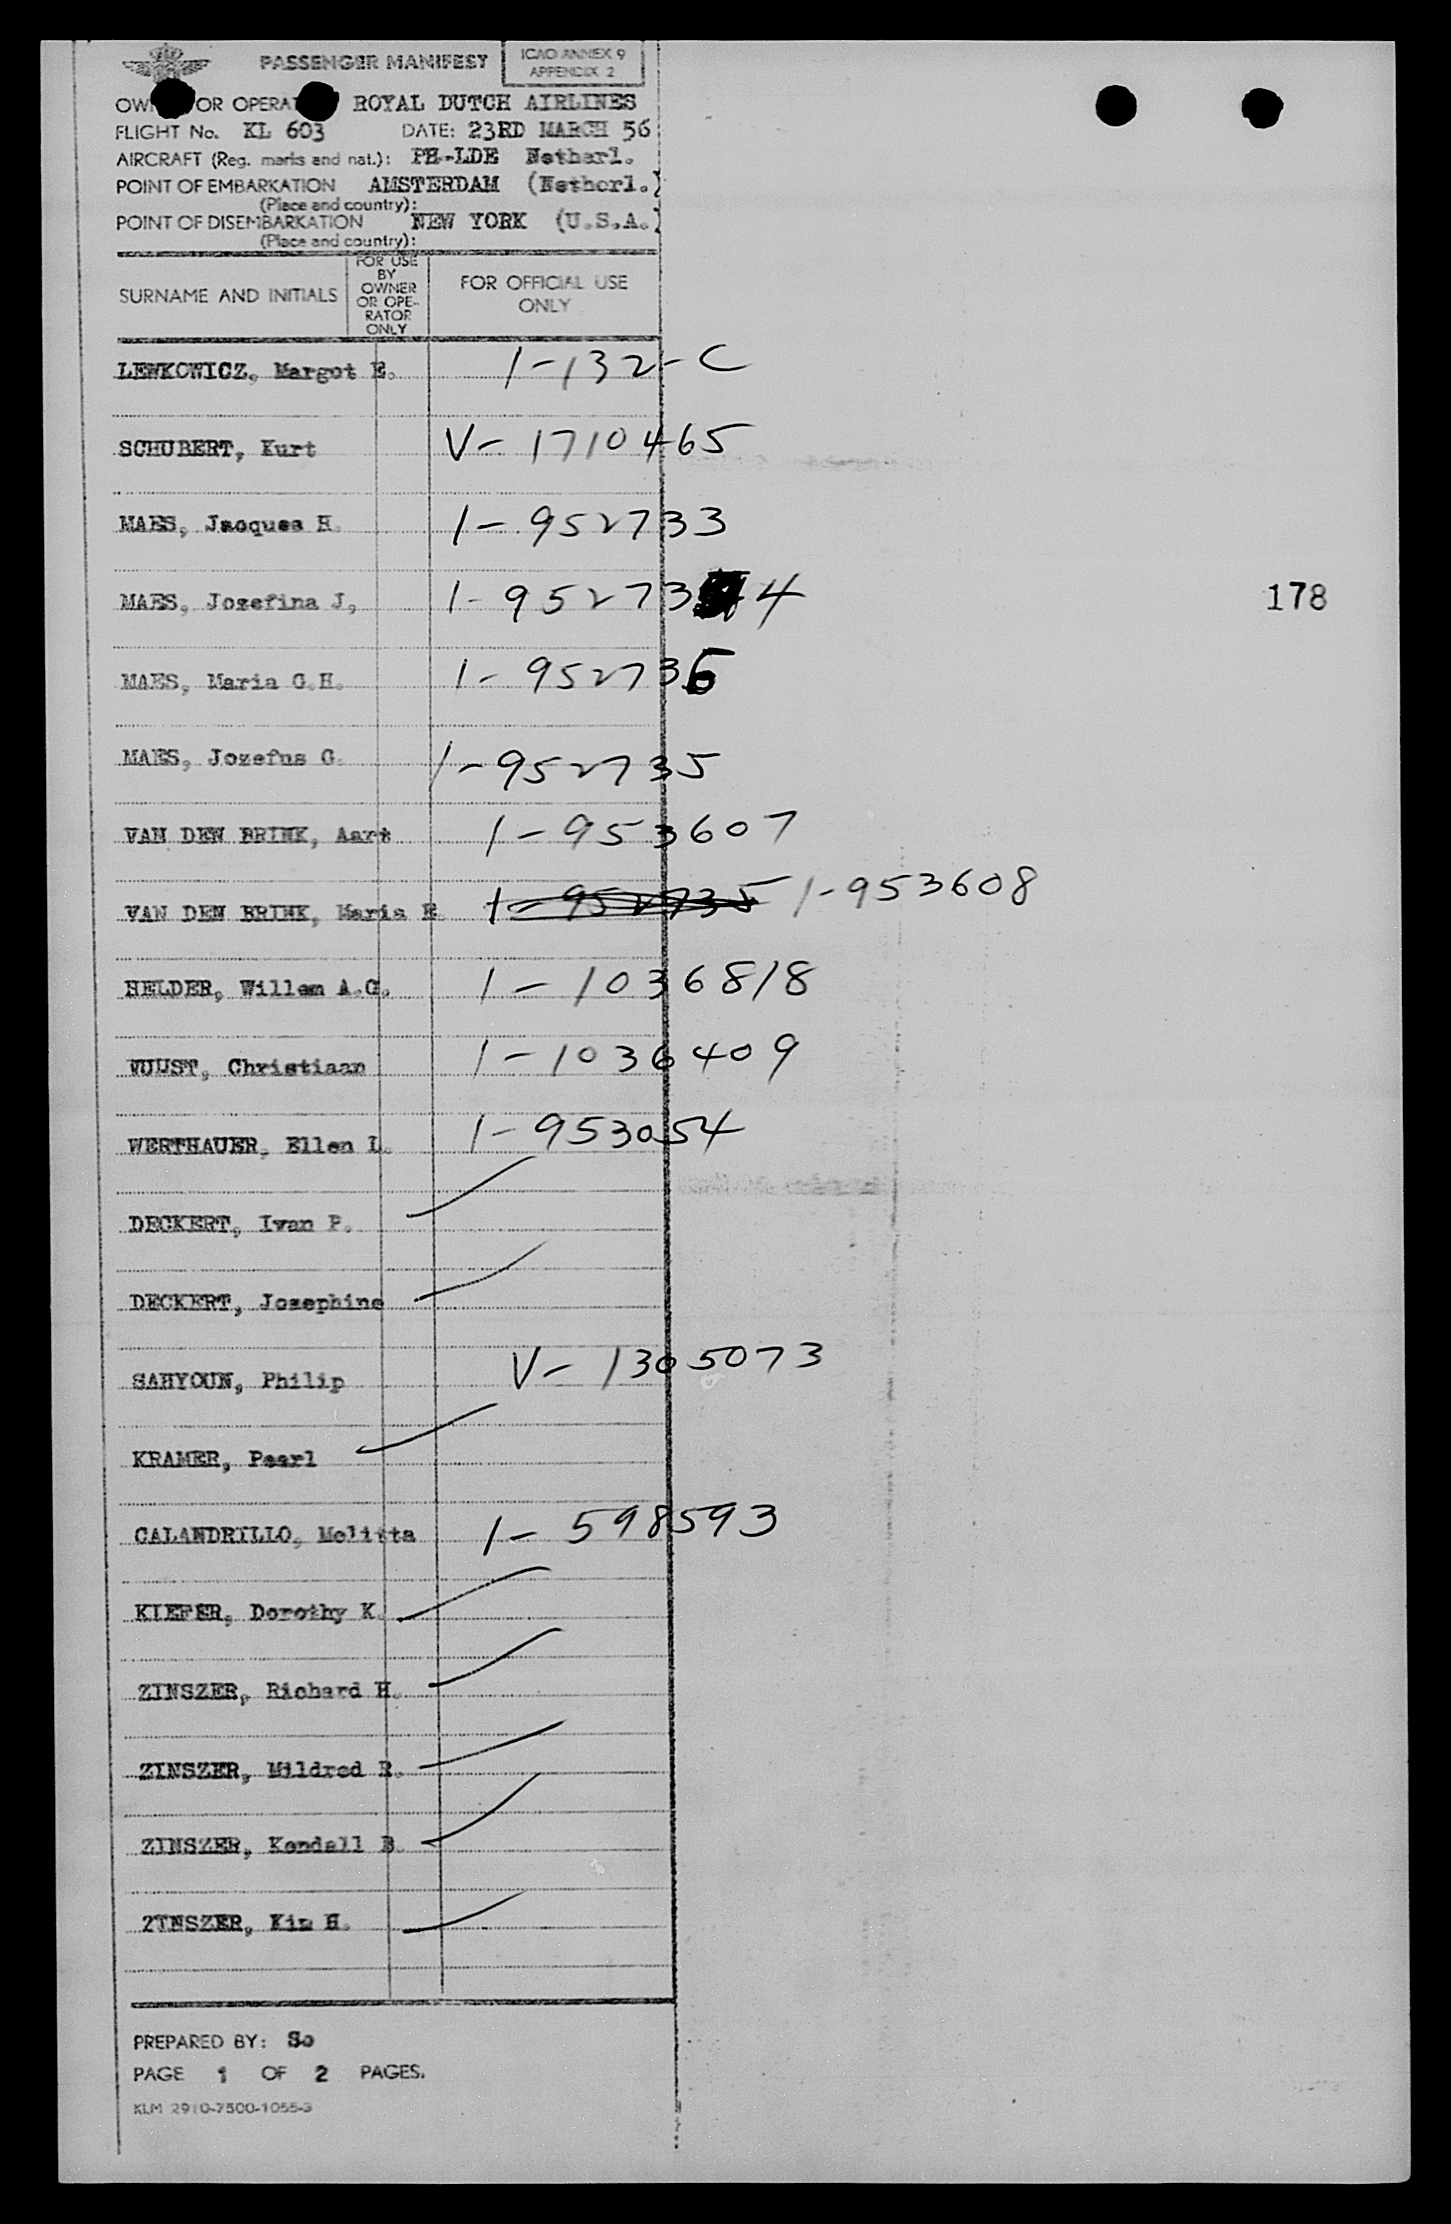 PASSENGER MANIFEST
ICAO ANNEX 9
APPENDIX 2
OR OPERA ROYAL DUTCH AIRLINES
FLIGHT No. KL 603 DATE: 23RD MARCH 56
AIRCRAFT (Reg. marks and nat.): PH-LDE Netherl.
POINT OF EMBARKATION AMSTERDAM (Netherl.)
(Place and country):
POINT OF DISEMBARKATION NEW YORK (U.S.A.)
(Place and country):
SURNAME AND INITIALS
FOR USE
BY
OWNER
OR OPE-
RATOR
ONLY
FOR OFFICIAL USE
ONLY
LEWKOWICZ, Margot E. 1-132-C
SCHUBERT, Kurt V-1710465
MAES, Jacques H. 1-952733
MAES, Jozefina J, 1-95273 4
178
MAES, Maria G.H. 1-952736
MAES, Jozefus G. 1-952735
VAN DEN BRINK, Aart 1-953607
VAN DEN BRINK, Maria E 1-952735 1-953608
HELDER, Willem A.G. 1-1036818
WUIJST, Christiaan 1-1036409
WERTHAUER, Ellen L. 1-953054
DECKERT, Ivan P.
DECKERT, Josephine
SAHYOUN, Philip V-1305073
KRAMER, Pearl
CALANDRILLO, Melitta 1-598593
KIEFER, Dorothy K.
ZINSZER, Richard H.
ZINSZER, Mildred R.
ZINSZER, Kendall B.
ZINSZER, Kim H.
PREPARED BY: So
PAGE 1 OF 2 PAGES.
KLM 2910-7500-1055-3